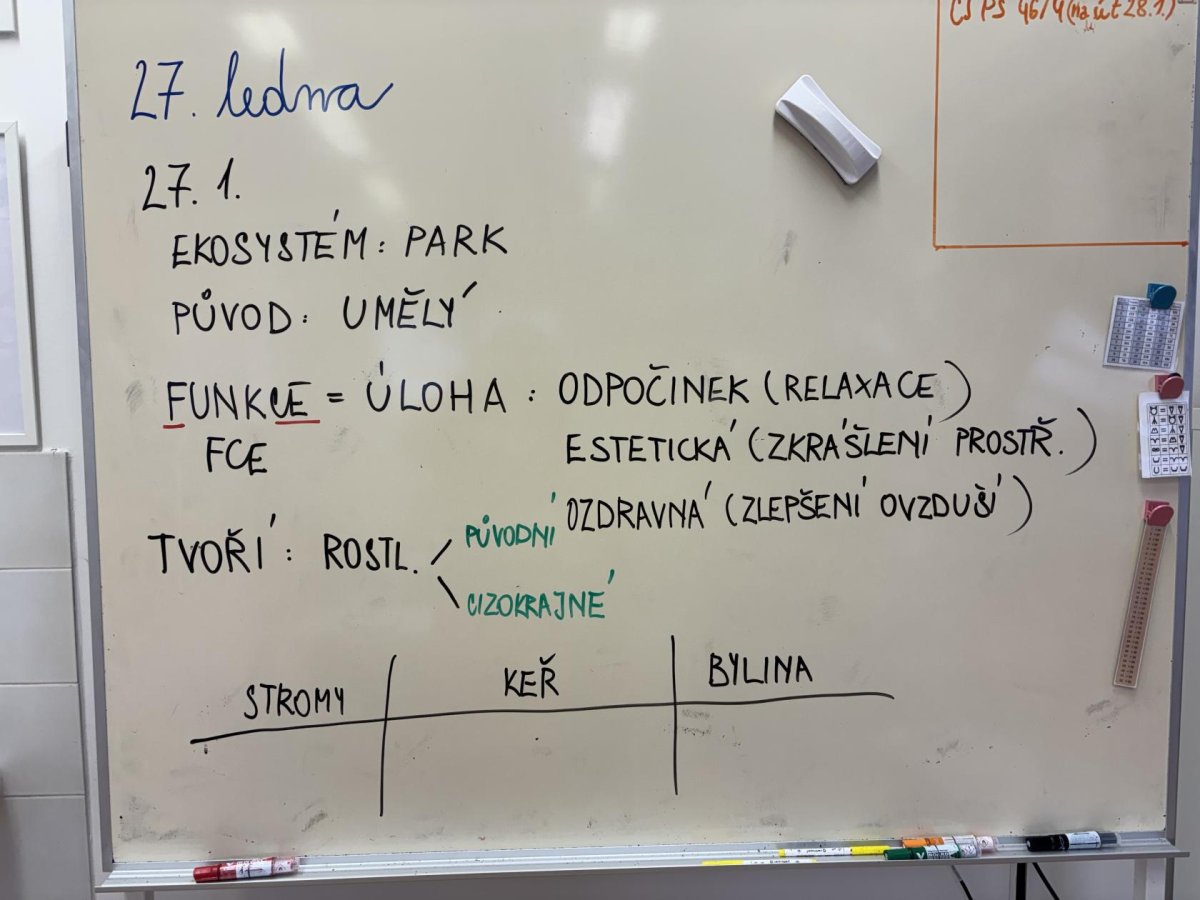 ČJ PS 46/4 (na út 28.1.)
27. ledna
27. 1.
EKOSYSTÉM: PARK
PŮVOD: UMĚLÝ
FUNKCE = ÚLOHA: ODPOČINEK (RELAXACE)
FCE
ESTETICKÁ (ZKRÁŠLENÍ PROSTŘ.)
OZDRAVNÁ (ZLEPŠENÍ OVZDUŠÍ)
TVOŘÍ: ROSTL.
PŮVODNÍ
CIZOKRAJNÉ
STROMY KEŘ BYLINA